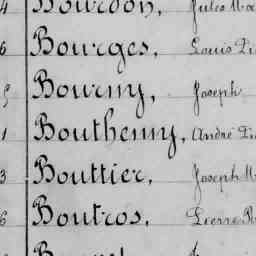 4 Bourdon, Jules
6 Bourges, Louis
5 Bourny, Joseph
1 Bouthemy, André
3 Bouttier, Joseph M
6 Boutros, Pierre